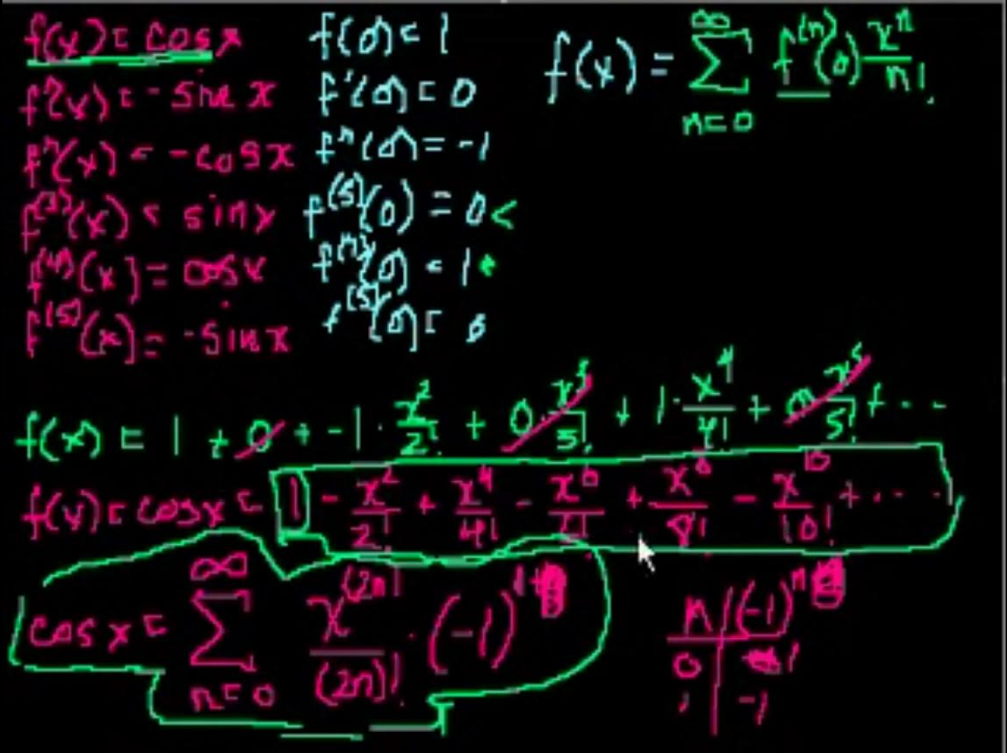 f(x) = cosx f(0) = 1 f(x) = ∑ n=0 ∞ f⁽ⁿ⁾(0) xⁿ/n!
f'(x) = -sin x f'(0) = 0
f''(x) = -cosx f''(0) = -1
f⁽³⁾(x) = sinx f⁽³⁾(0) = 0 <
f⁽⁴⁾(x) = cosx f⁽⁴⁾(0) = 1
f⁽⁵⁾(x) = -sinx f⁽⁵⁾(0) = 0
f(x) = 1 + 0 + -1 · x²/2! + 0 · x³/3! + 1 · x⁴/4! + 0 x⁵/5! + ...
f(x) = cosx = 1 - x²/2! + x⁴/4! - x⁶/6! + x⁸/8! - x¹⁰/10! + ...
cosx = ∑ n=0 ∞ x⁽²ⁿ⁾/(2n)! · (-1)
n | (-1)ⁿ
0 | 1
1 | -1